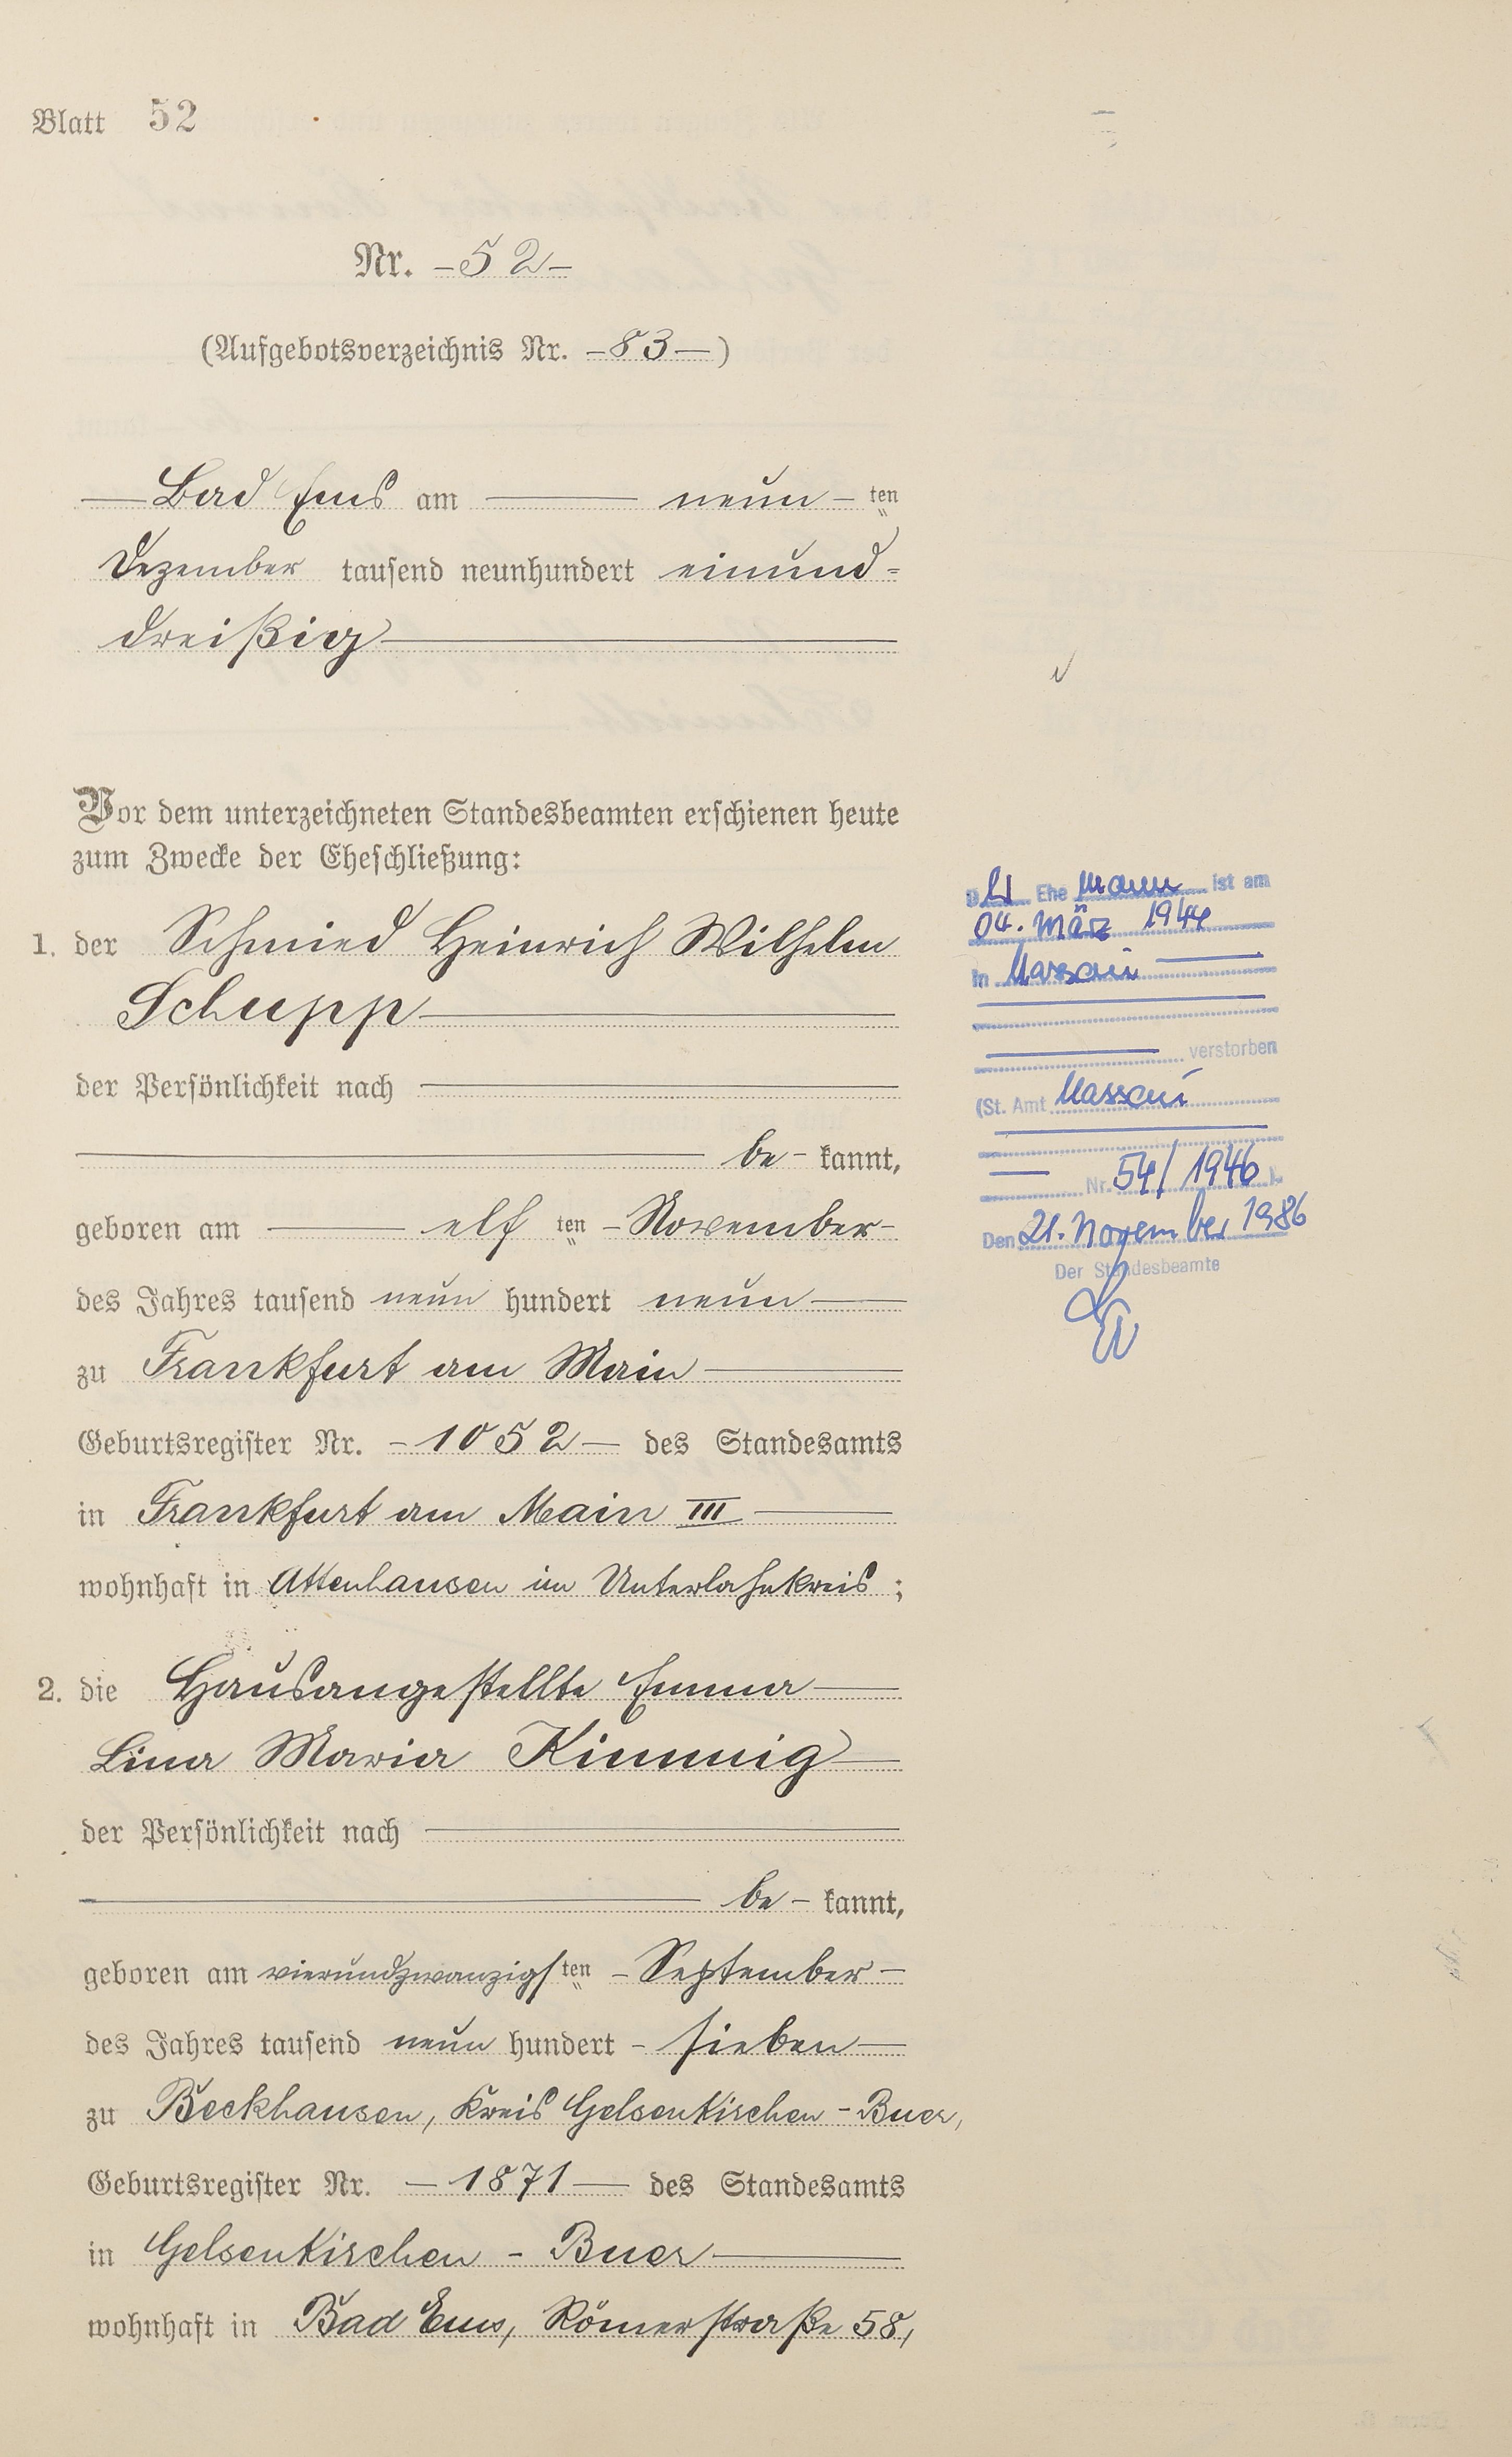 Blatt 52
Nr. -52-
(Aufgebotsverzeichnis Nr. -83-)
Bad Ems am neun-ten
Dezember tausend neunhundert einund=
dreißig
Vor dem unterzeichneten Standesbeamten erschienen heute
zum Zwecke der Eheschließung:
1. der Schmied Heinrich Wilhelm
Schupp
der Persönlichkeit nach
be- kannt,
geboren am elf ten - November -
des Jahres tausend neun hundert neun
zu Frankfurt am Main
Geburtsregister Nr. - 1052 - des Standesamts
in Frankfurt am Main III
wohnhaft in Attenhausen im Unterlahnkreis ;
2. die Hausangestellte Emma
Lina Maria Kimmig
der Persönlichkeit nach
be - kannt,
geboren am vierundzwanzigsten - September -
des Jahres tausend neun hundert - sieben
zu Beckhausen, Kreis Gelsenkirchen - Buer,
Geburtsregister Nr. - 1871 - des Standesamts
in Gelsenkirchen - Buer
wohnhaft in Bad Ems, Römerstraße 58,
Der Ehe Mann ist am
04. März 1944
in Nassau
verstorben
(St. Amt Nassau
Nr. 54/1946 ).
Den 21. November 1986
Der Standesbeamte